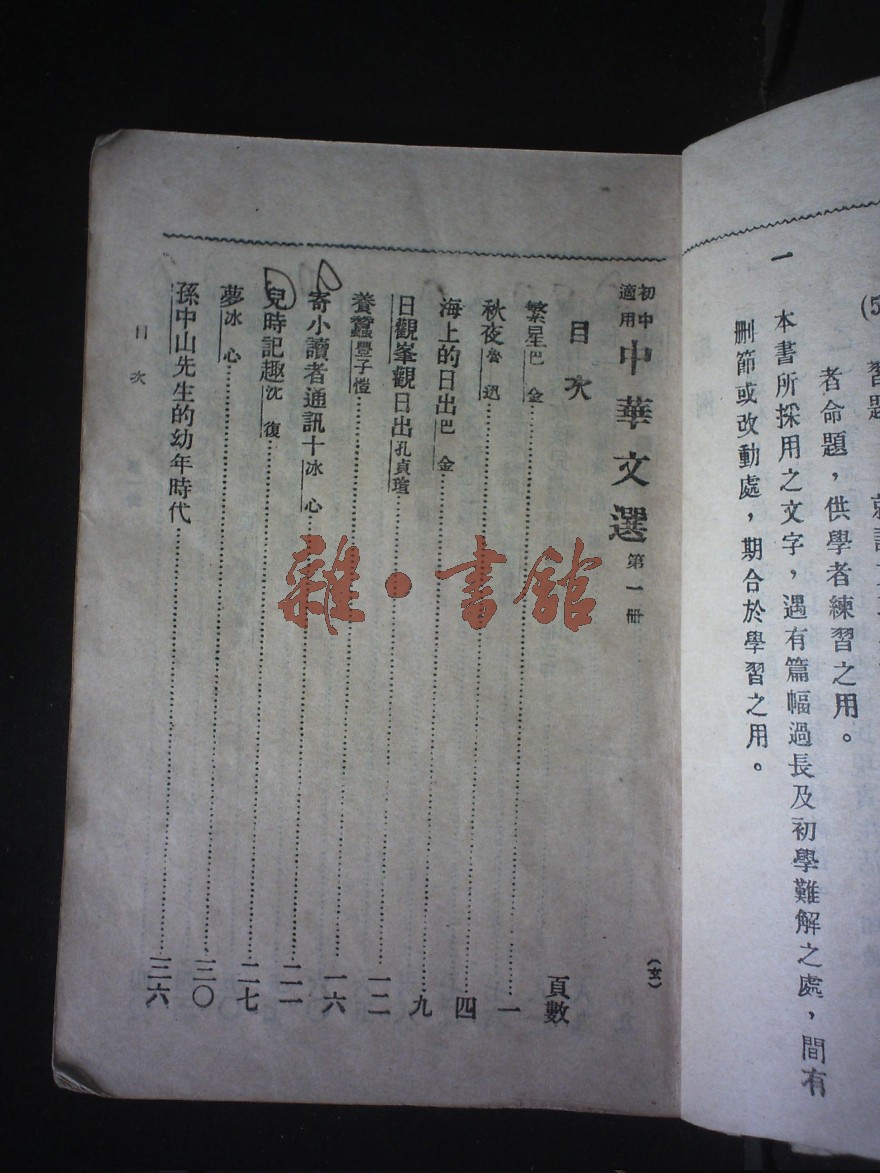 (5) 習題
者命題，供學者練習之用。
一 本書所採用之文字，遇有篇幅過長及初學難解之處，間有
刪節或改動處，期合於學習之用。
初中適用 中華文選 第一冊 (玄)
目次
頁數
繁星 巴金……一
秋夜 魯迅……四
海上的日出 巴金……九
日觀峯觀日出 孔貞瑄……一二
養蠶 豐子愷……一六
寄小讀者通訊十 冰心……二二
兒時記趣 沈復……二七
夢 冰心……三〇
孫中山先生的幼年時代……三六
目次
雜·書館